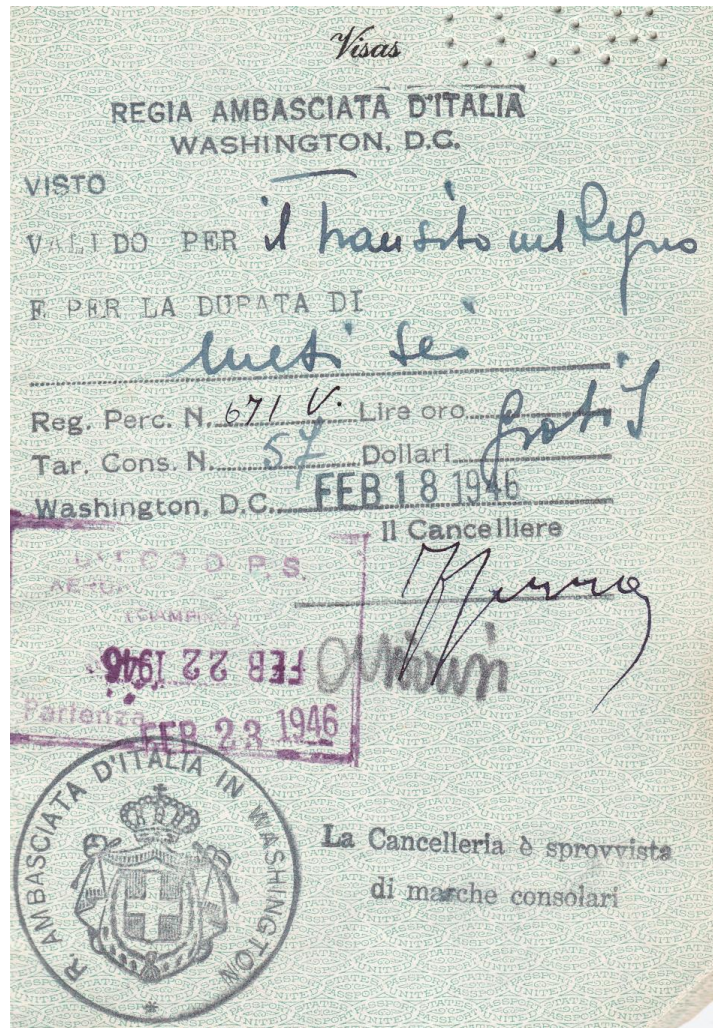 Visas
REGIA AMBASCIATA D'ITALIA
WASHINGTON, D.C.
VISTO
VALIDO PER il transito nel Regno
E PER LA DURATA DI
mesi sei
Reg. Perc. N. 671 V. Lire oro gratis
Tar. Cons. N. 57 Dollari
Washington, D.C. FEB 18 1946
Il Cancelliere
P. S.
FEB 22 1946
Partenza
FEB 23 1946
R. AMBASCIATA D'ITALIA IN WASHINGTON
La Cancelleria è sprovvista
di marche consolari